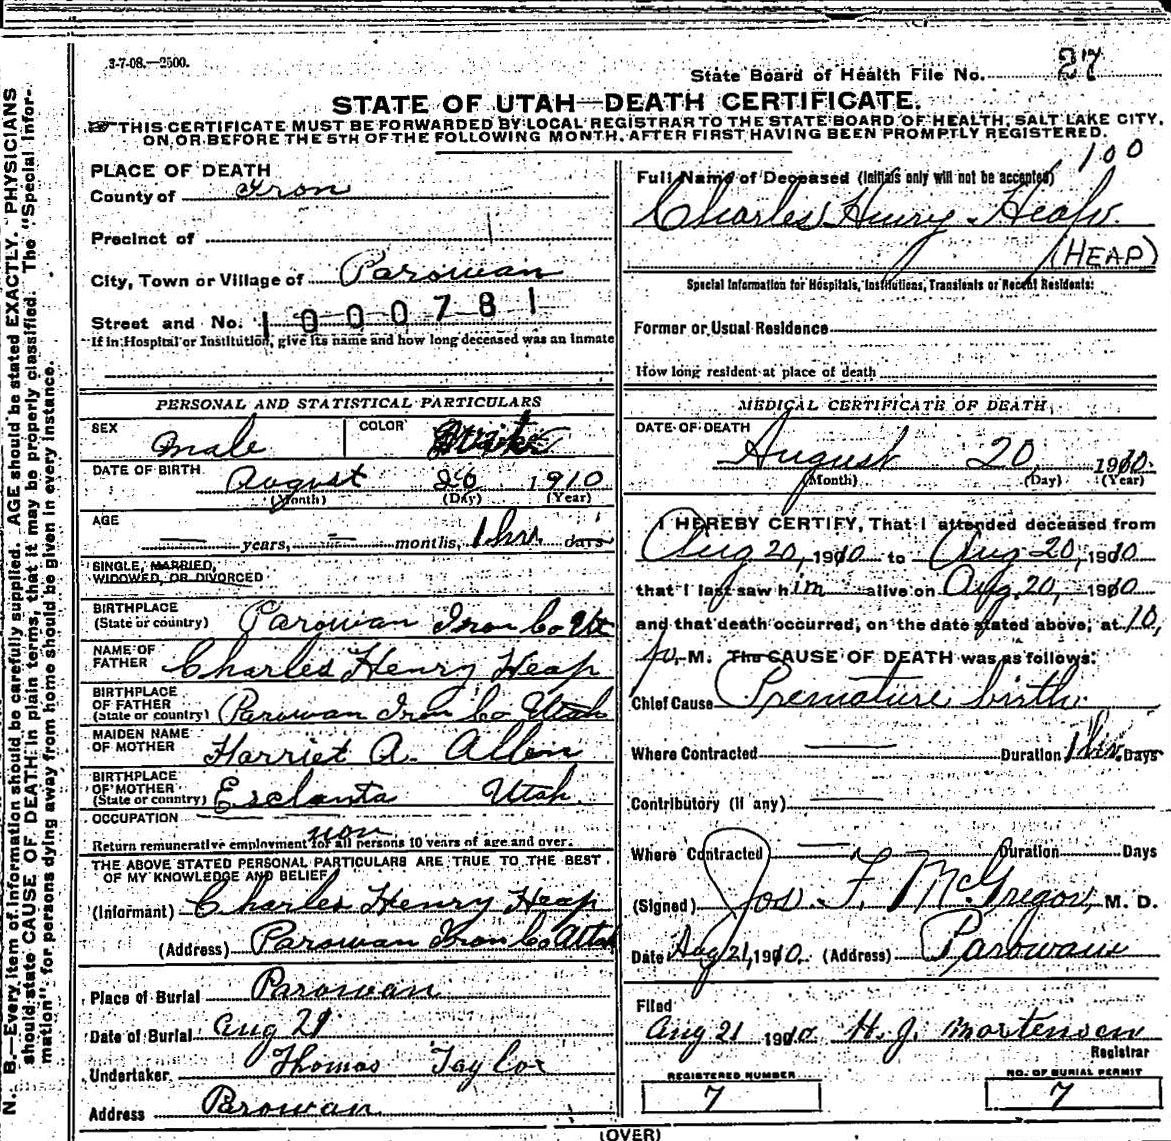 3-7-08.—2500.
State Board of Health File No. 27
STATE OF UTAH—DEATH CERTIFICATE.
THIS CERTIFICATE MUST BE FORWARDED BY LOCAL REGISTRAR TO THE STATE BOARD OF HEALTH, SALT LAKE CITY,
ON OR BEFORE THE 5TH OF THE FOLLOWING MONTH, AFTER FIRST HAVING BEEN PROMPTLY REGISTERED.
PLACE OF DEATH
County of Iron
Precinct of
City, Town or Village of Parowan
Street and No. 1000781
If in Hospital or Institution, give its name and how long deceased was an inmate
100
Full Name of Deceased (Initials only will not be accepted)
Charles Henry Heap
(HEAP)
Special Information for Hospitals, Institutions, Transients or Recent Residents:
Former or Usual Residence
How long resident at place of death
PERSONAL AND STATISTICAL PARTICULARS
SEX male COLOR White
DATE OF BIRTH August 20 1910
(Month) (Day) (Year)
AGE — years, — months, 1 hr. days
SINGLE, MARRIED,
WIDOWED, OR DIVORCED
BIRTHPLACE
(State or country) Parowan Iron Co Ut
NAME OF
FATHER Charles Henry Heap
BIRTHPLACE
OF FATHER
(State or country) Parowan Iron Co Utah
MAIDEN NAME
OF MOTHER Harriet A. Allen
BIRTHPLACE
OF MOTHER
(State or country) Esclanta Utah.
OCCUPATION
non
Return remunerative employment for all persons 10 years of age and over.
THE ABOVE STATED PERSONAL PARTICULARS ARE TRUE TO THE BEST
OF MY KNOWLEDGE AND BELIEF
(Informant) Charles Henry Heap
(Address) Parowan Iron Co Utah
Place of Burial Parowan
Date of Burial Aug 21
Undertaker Thomas Taylor
Address Parowan.
MEDICAL CERTIFICATE OF DEATH
DATE OF DEATH
August 20, 1910.
(Month) (Day) (Year)
I HEREBY CERTIFY, That I attended deceased from
Aug 20, 1910 to Aug 20, 1910
that I last saw him alive on Aug. 20, 1910
and that death occurred, on the date stated above, at 10,
p.M. The CAUSE OF DEATH was as follows:
Chief Cause Premature birth
Where Contracted — Duration 1 hr. Days
Contributory (if any) —
Where Contracted — Duration Days
(Signed) Jos. F. McGregor, M. D.
Date Aug 21, 1910. (Address) Parowan
Filed
Aug 21 1910. H. J. Mortensen
Registrar
REGISTERED NUMBER
7
NO. OF BURIAL PERMIT
7
(OVER)
N. B.—Every item of information should be carefully supplied. AGE should be stated EXACTLY. PHYSICIANS
should state CAUSE OF DEATH in plain terms, that it may be properly classified. The "Special Infor-
mation" for persons dying away from home should be given in every instance.